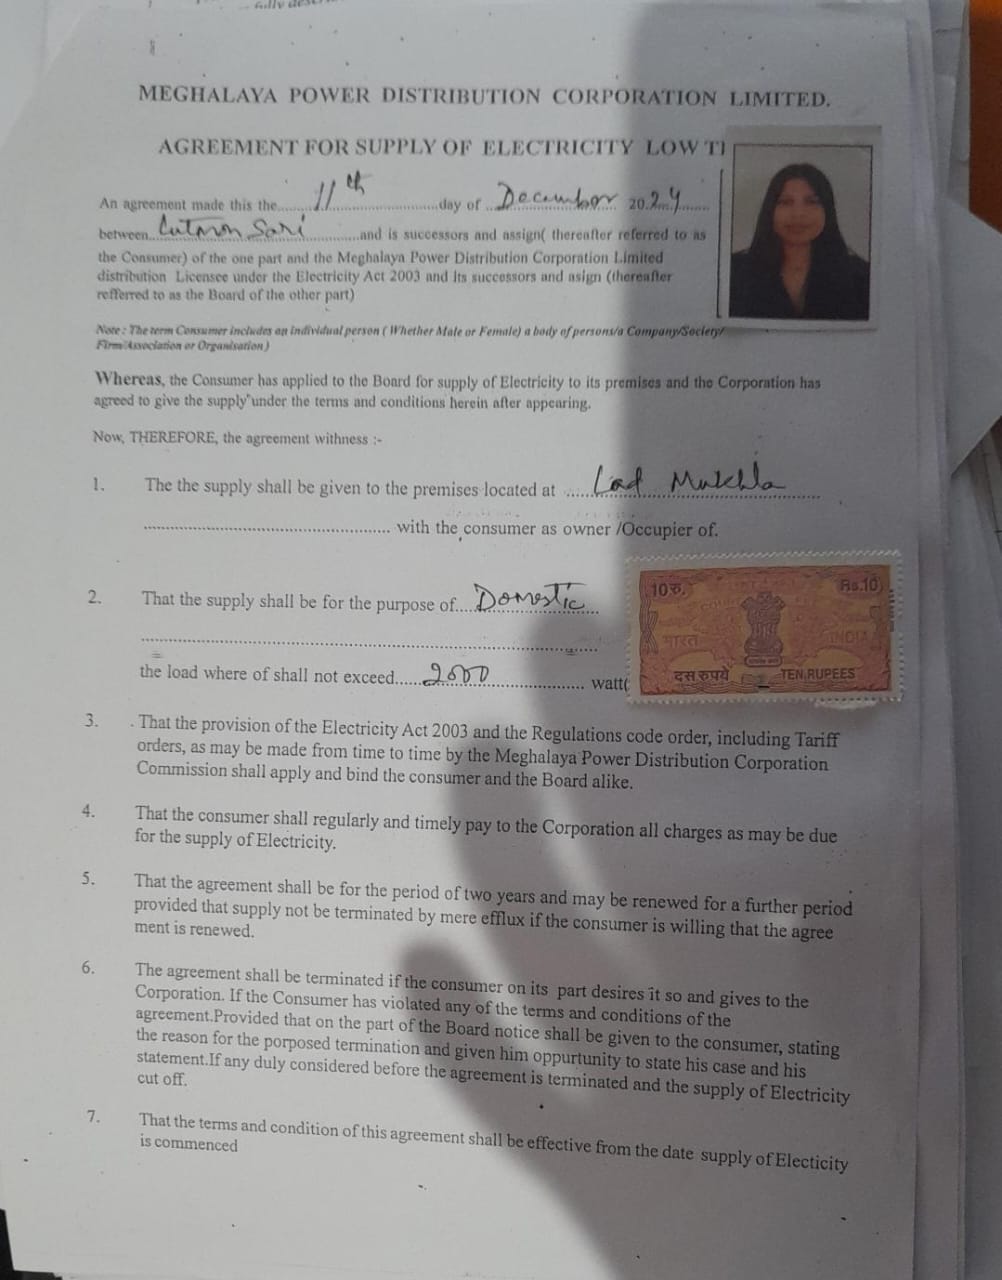 MEGHALAYA POWER DISTRIBUTION CORPORATION LIMITED.
AGREEMENT FOR SUPPLY OF ELECTRICITY LOW
An agreement made this the........11th........................day of ..December 20.24.......
between.. Sari ............and is successors and assign( thereafter referred to as
the Consumer) of the one part and the Meghalaya Power Distribution Corporation Limited
distribution Licensee under the Electricity Act 2003 and its successors and asign (thereafter
refferred to as the Board of the other part)
Note : The term Consumer includes an individual person ( Whether Male or Female) a body of persons/a Company/Society/
Firm/Association or Organisation)
Whereas, the Consumer has applied to the Board for supply of Electricity to its premises and the Corporation has
agreed to give the supply under the terms and conditions herein after appearing.
Now, THEREFORE, the agreement withness :-
1. The the supply shall be given to the premises located at ......Lad Mukhla
.................................................. with the consumer as owner /Occupier of.
10रु. Rs.10
भारत INDIA
दस रुपये TEN RUPEES
2. That the supply shall be for the purpose of....Domestic
the load where of shall not exceed......200.................... watt(
3. . That the provision of the Electricity Act 2003 and the Regulations code order, including Tariff
orders, as may be made from time to time by the Meghalaya Power Distribution Corporation
Commission shall apply and bind the consumer and the Board alike.
4. That the consumer shall regularly and timely pay to the Corporation all charges as may be due
for the supply of Electricity.
5. That the agreement shall be for the period of two years and may be renewed for a further period
provided that supply not be terminated by mere efflux if the consumer is willing that the agree
ment is renewed.
6. The agreement shall be terminated if the consumer on its part desires it so and gives to the
Corporation. If the Consumer has violated any of the terms and conditions of the
agreement.Provided that on the part of the Board notice shall be given to the consumer, stating
the reason for the porposed termination and given him oppurtunity to state his case and his
statement.If any duly considered before the agreement is terminated and the supply of Electricity
cut off.
7. That the terms and condition of this agreement shall be effective from the date supply of Electicity
is commenced